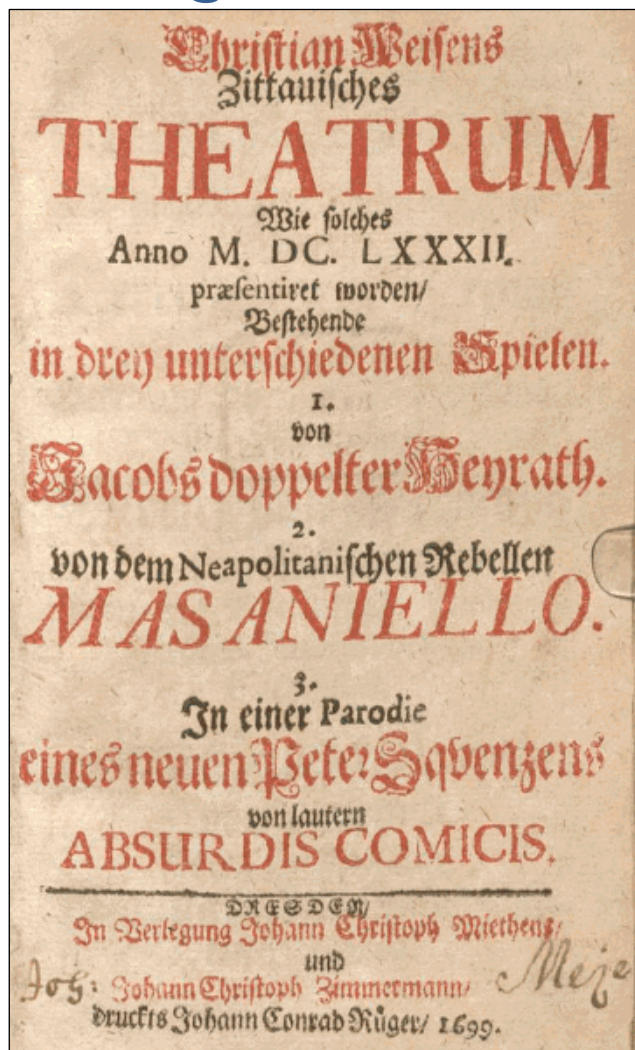 Christian Weisens
Zittauisches
THEATRUM
Wie solches
Anno M. DC. LXXXII.
præsentiret worden/
Bestehende
in drey unterschiedenen Spielen.
1.
von
Jacobs doppelter Heyrath.
2.
von dem Neapolitanischen Rebellen
MASANIELLO.
3.
In einer Parodie
eines neuen Peter Sqvenzens
von lautern
ABSURDIS COMICIS.
DRESDEN/
In Verlegung Johann Christoph Miethens/
und
Joh: Johann Christoph Zimmermann/ Meje
druckts Johann Conrad Rüger/ 1699.